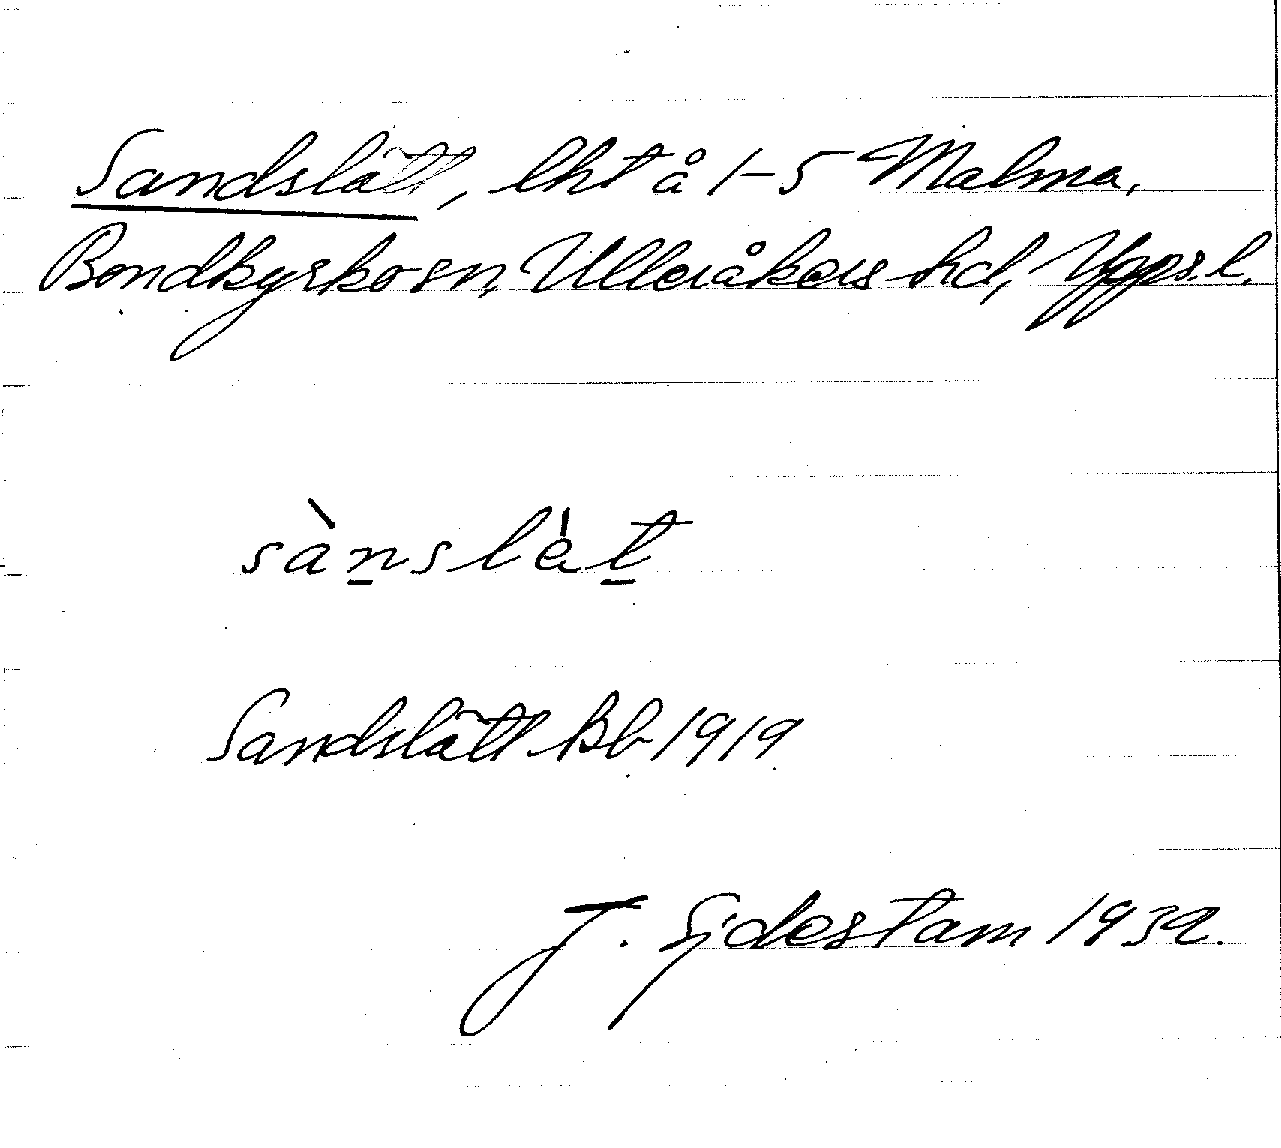 Sandslätt, lht å 1-5 Malma,
Bondkyrko sn, Ulleråkers hd, Uppsl.
sàn̲slàt̲
Sandslätt Bb 1919
J. Sjdestam 1932.